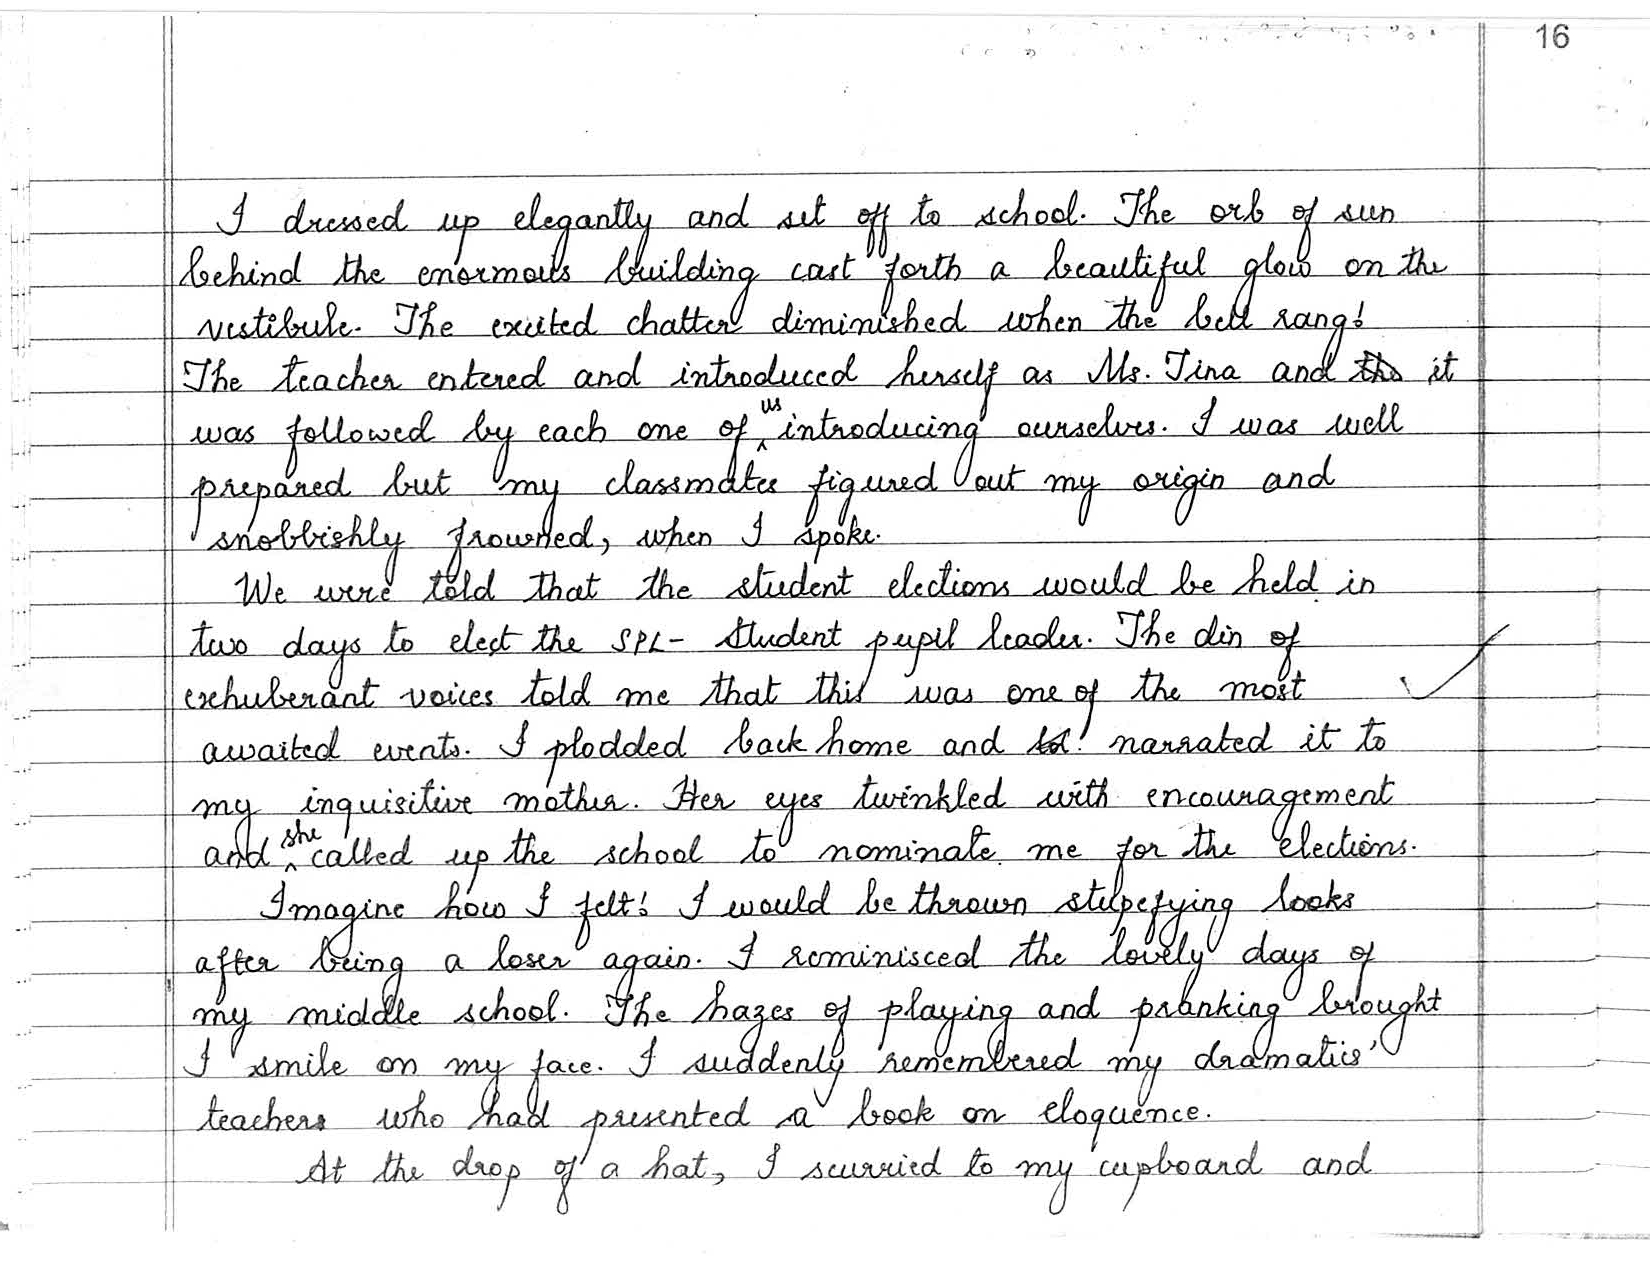 16
I dressed up elegantly and set off to school. The orb of sun
behind the enormous building cast forth a beautiful glow on the
vestibule. The excited chatter diminished when the bell rang!
The teacher entered and introduced herself as Ms. Tina and it
was followed by each one of us introducing ourselves. I was well
prepared but my classmates figured out my origin and
snobbishly frowned, when I spoke.
We were told that the student elections would be held in
two days to elect the SPL- Student pupil leader. The din of
exhuberant voices told me that this was one of the most
awaited events. I plodded back home and narrated it to
my inquisitive mother. Her eyes twinkled with encouragement
and she called up the school to nominate me for the elections.
Imagine how I felt! I would be thrown stupefying looks
after being a loser again. I reminisced the lovely days of
my middle school. The hazes of playing and pranking brought
I smile on my face. I suddenly remembered my dramatics'
teachers who had presented a book on eloquence.
At the drop of a hat, I scurried to my cupboard and